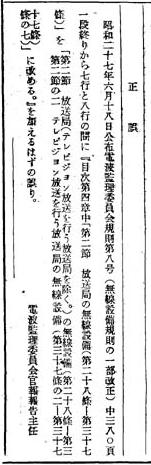 正誤
昭和二十七年六月十八日公布電波監理委員会規則第八号(無線設備規則の一部改正)中三八〇頁
一段終りから七行と八行の間に『目次第四章中「第二節 放送局の無線設備(第二十八條―第三十七
條)」を「第二節 放送局(テレビジョン放送を行う放送局を除く。)の無線設備(第二十八條―第三
第二節の二 テレビジョン放送を行う放送局の無線設備(第三十七條の二―第三十
十七條)
條の七)」に改める。』を加えるはずの誤り。
電波監理委員会官報報告主任